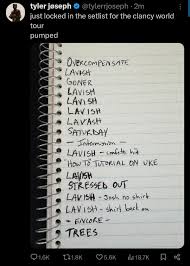 tyler joseph @tylerrjoseph · 2m
just locked in the setlist for the clancy world
tour
pumped
OVERCOMPENSATE
LAVISH
GONER
LAVISH
LAVISH
LAVISH
LAVISH
SATURDAY
- Intermission -
LAVISH -
HOW TO TUTORIAL ON UKE
LAVISH
STRESSED OUT
LAVISH - Josh no shirt
LAVISH - shirt back on
- ENCORE -
TREES
1.6K 1.8K 5.6K 18.7K